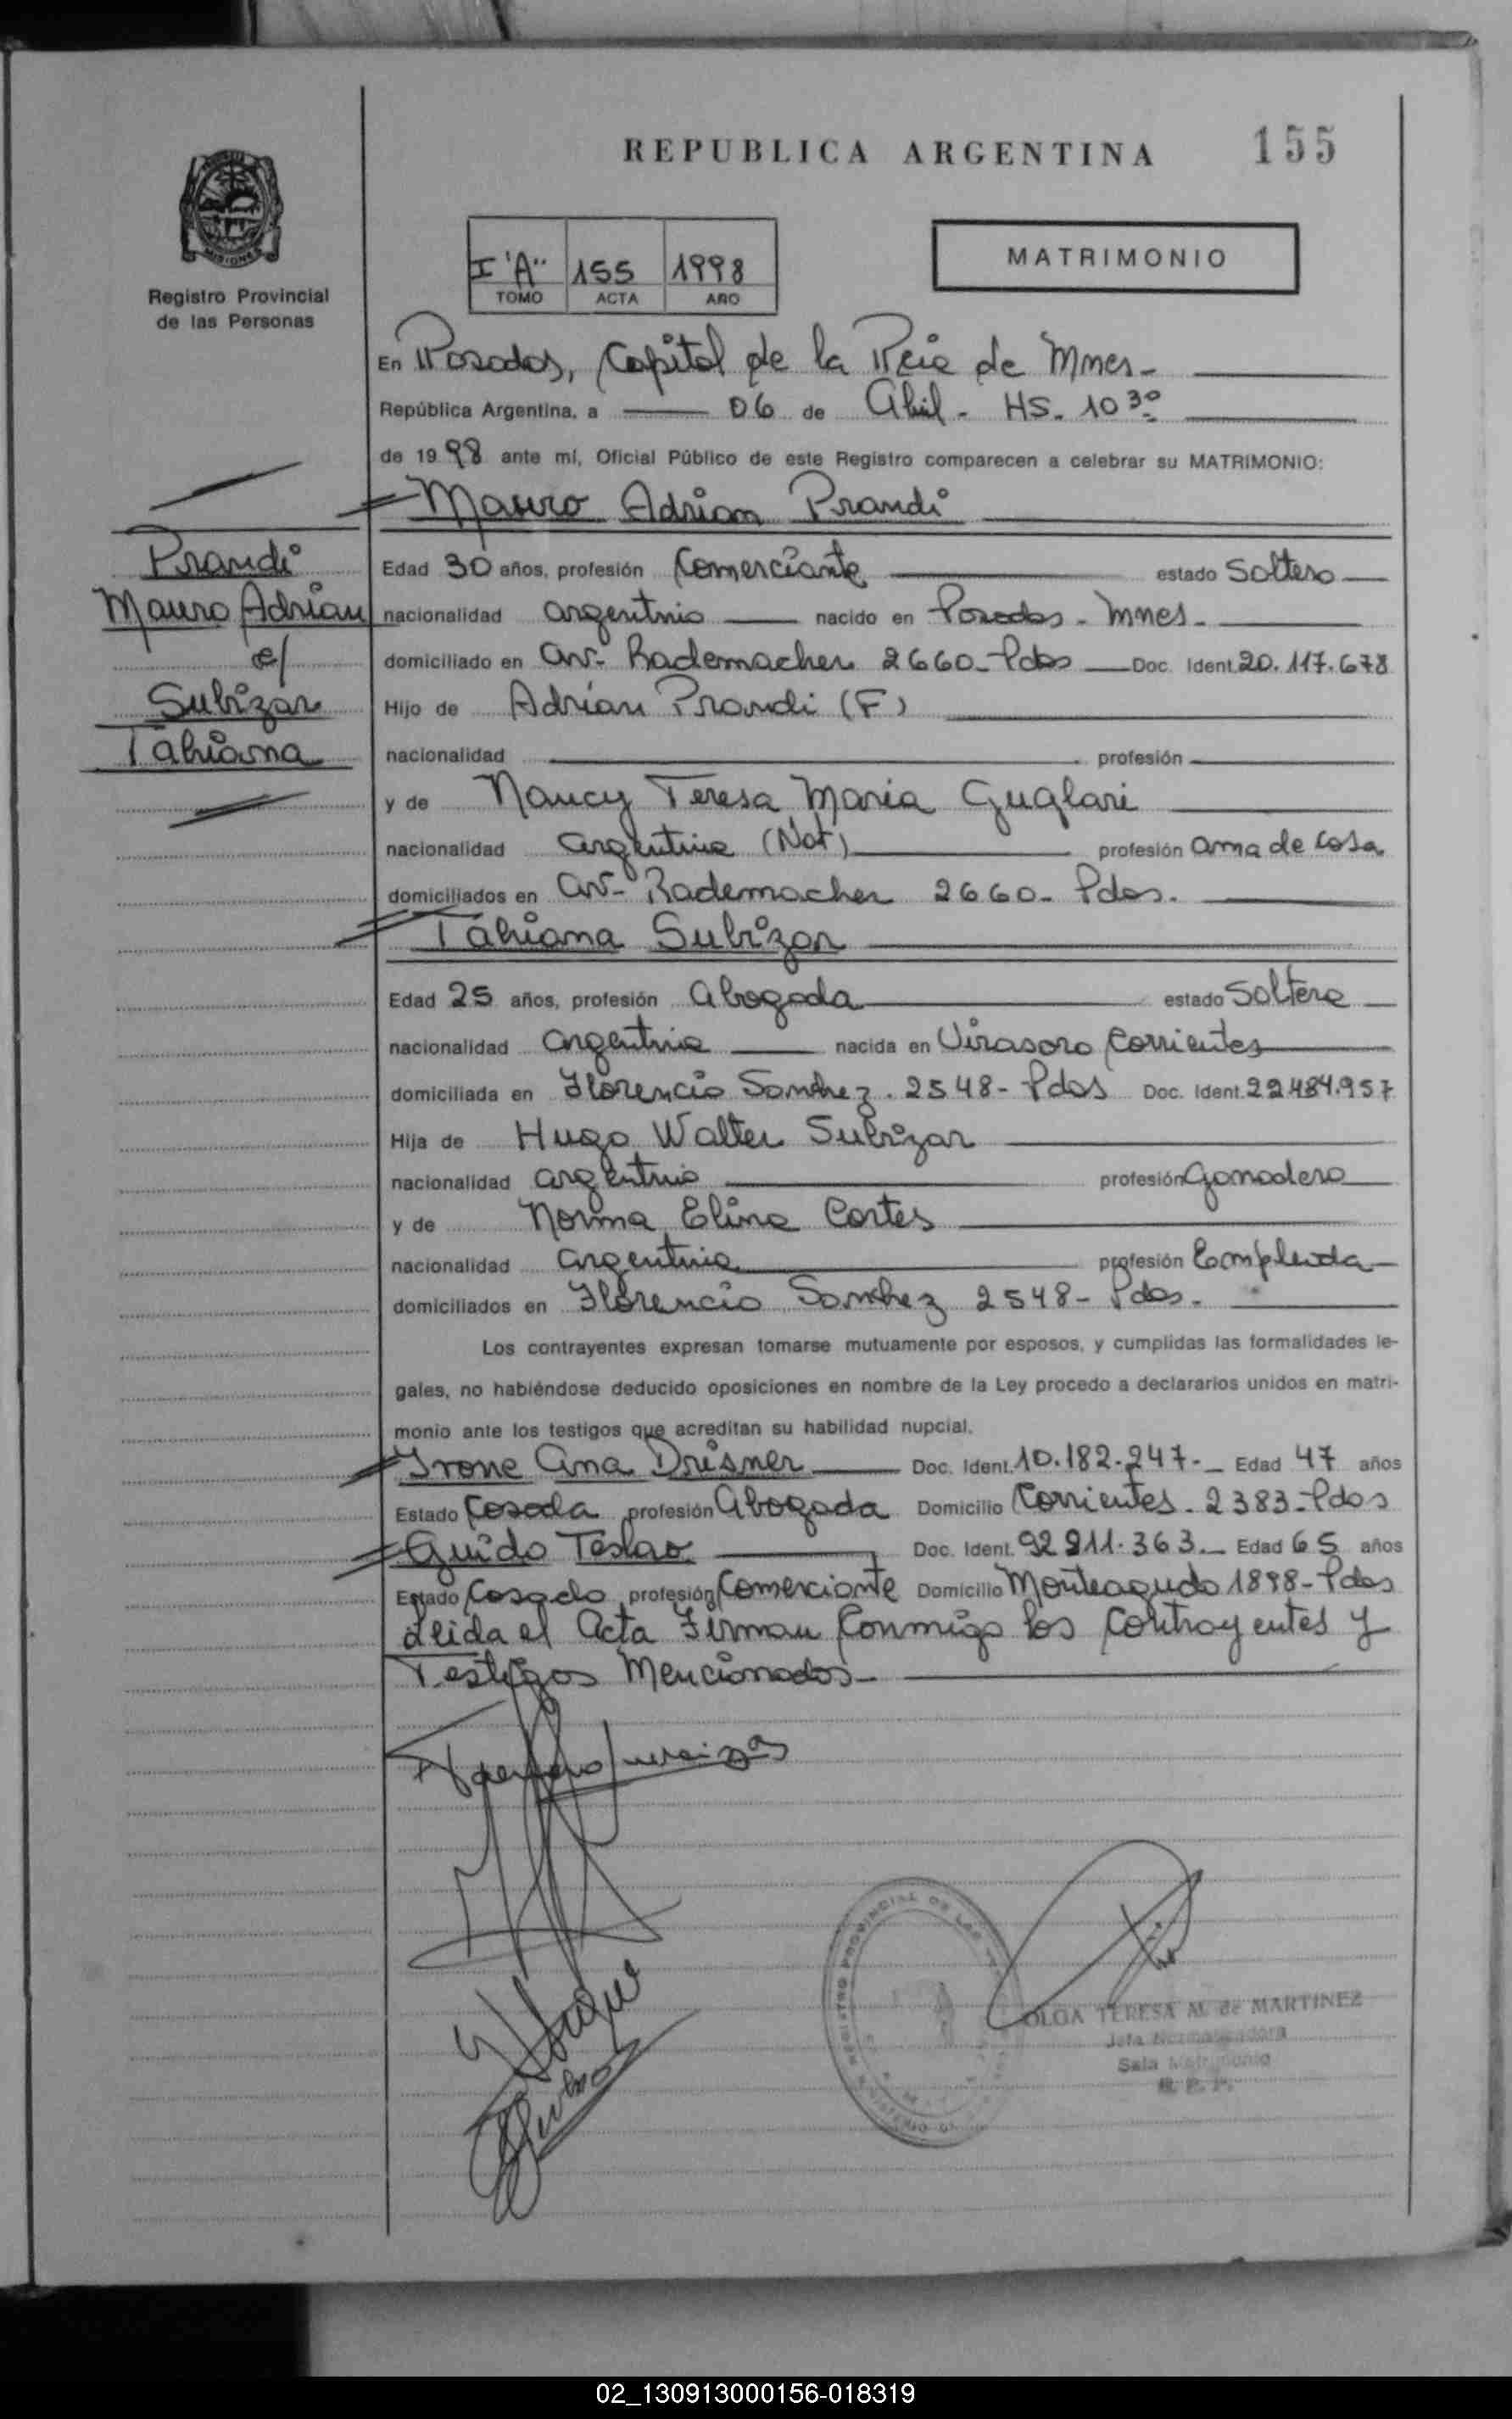 REPUBLICA ARGENTINA 155
MISIONES
Registro Provincial
de las Personas
I "A" 155 1998
TOMO ACTA AÑO
MATRIMONIO
En Posadas, Capital de la Pcia de Mnes-
República Argentina, a 06 de Abril - HS. 10 30
de 1998 ante mí, Oficial Público de este Registro comparecen a celebrar su MATRIMONIO:
Mauro Adrian Prandi
Prandi
Mauro Adrián
c/
Subizar
Tahiana
Edad 30 años, profesión Comerciante estado Soltero
nacionalidad argentino nacido en Posadas - Mnes-
domiciliado en av- Rademacher 2660- Pdas Doc. Ident. 20.117.678
Hijo de Adrián Prandi (F)
nacionalidad profesión
y de Nancy Teresa Maria Guglari
nacionalidad argentina (Nat) profesión ama de casa
domiciliados en av- Rademacher 2660- Pdas.
Tahiana Subizar
Edad 25 años, profesión Abogada estado Soltera
nacionalidad argentina nacida en Virasoro Corrientes
domiciliada en Florencio Sanchez. 2548- Pdas Doc. Ident. 22.484.957
Hija de Hugo Walter Subizar
nacionalidad argentino profesión Ganadero
y de Norma Elina Cortes
nacionalidad argentina profesión Empleada
domiciliados en Florencio Sanchez 2548- Pdas.
Los contrayentes expresan tomarse mutuamente por esposos, y cumplidas las formalidades le-
gales, no habiéndose deducido oposiciones en nombre de la Ley procedo a declararlos unidos en matri-
monio ante los testigos que acreditan su habilidad nupcial.
Irone Ana Drisner Doc. Ident. 10.182.247.- Edad 47 años
Estado Casada profesión Abogada Domicilio Corrientes - 2383- Pdas
Guido Teslao Doc. Ident. 92 911.363.- Edad 65 años
Estado Casado profesión Comerciante Domicilio Monteagudo 1898- Pdas
Leida el Acta Firman Conmigo los Contrayentes y
Testigos Mencionados-
REGISTRO PROVINCIAL DE LAS
OLGA TERESA M. de MARTINEZ
Jefa Normalizadora
Sala Matrimonio
R. P. P.
02_130913000156-018319